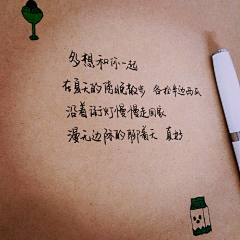 多想和你一起
在夏天的傍晚散步 各拎半边西瓜
沿着路灯慢慢走回家
漫无边际的聊着天 真好